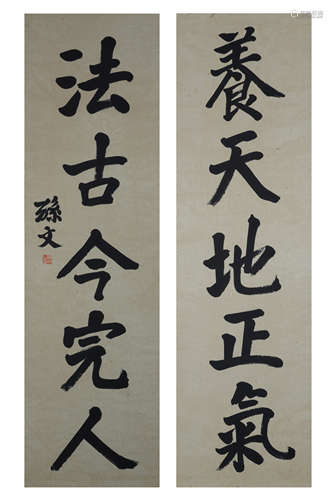 養天地正氣
法古今完人
孫文